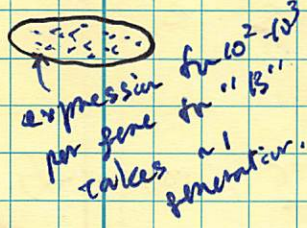 expression for 10² - 10³
per gene for "B"
takes ~1
generation.